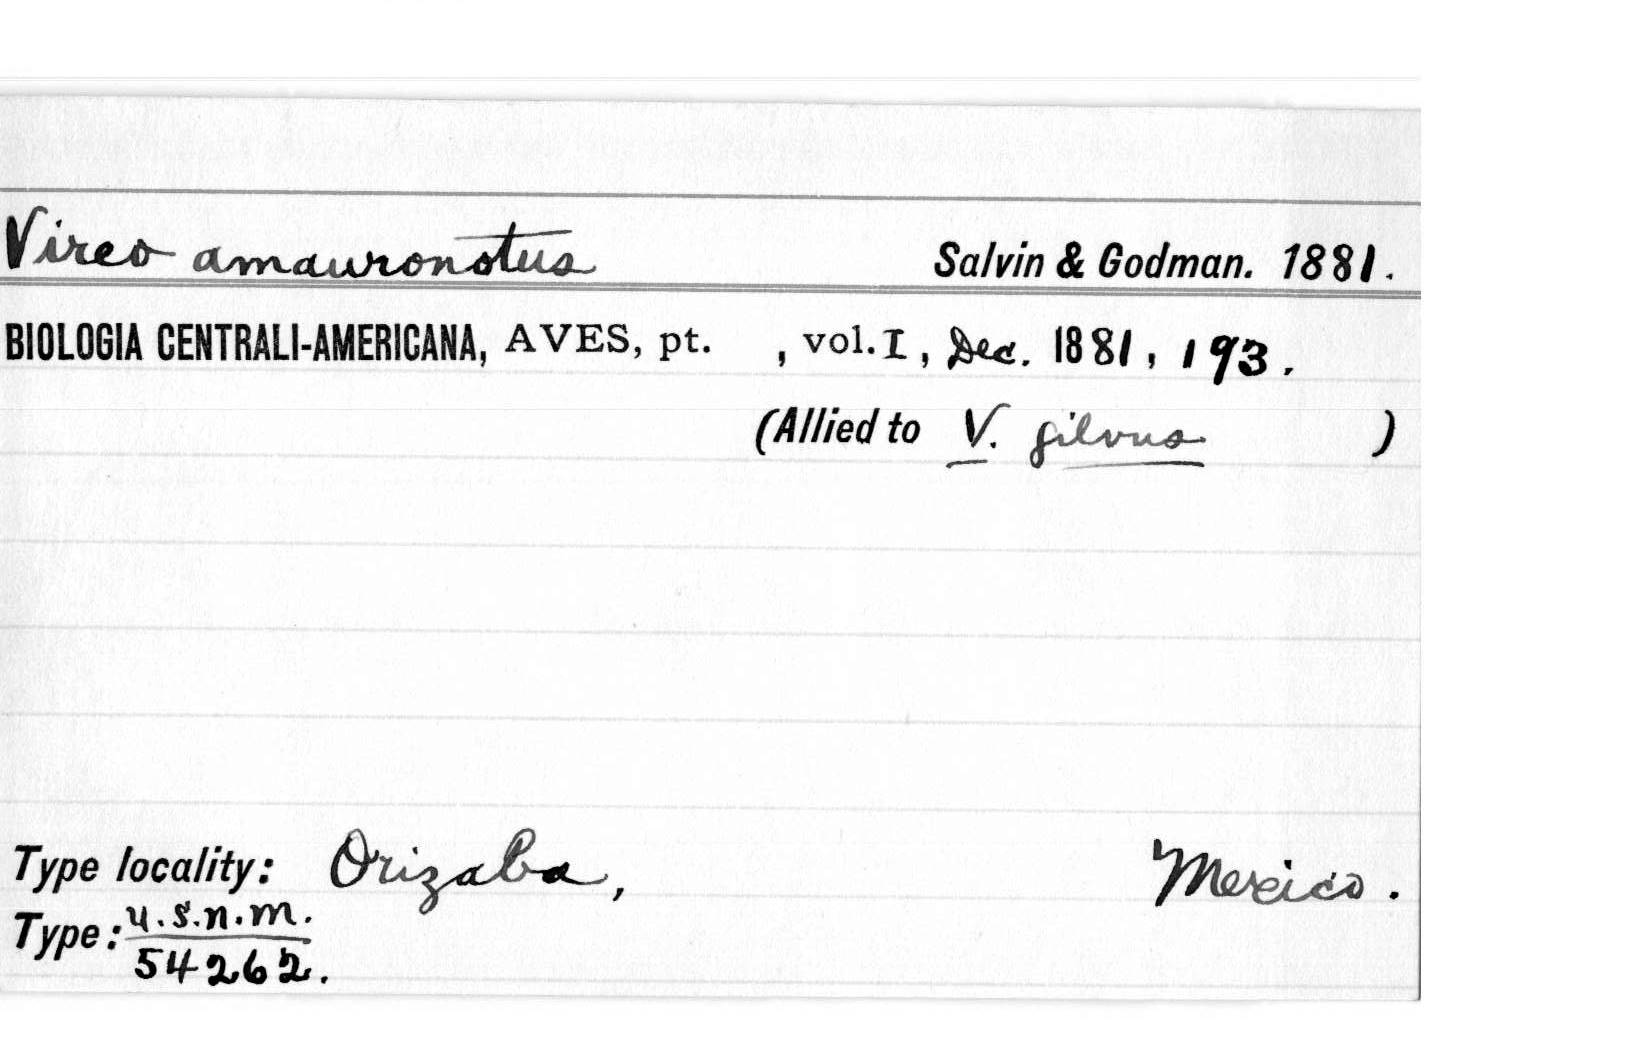 Vireo amauronotus Salvin & Godman. 1881.
BIOLOGIA CENTRALI-AMERICANA, AVES, pt. , vol. I, Dec. 1881, 193.
(Allied to V. gilvus )
Type locality: Orizaba, Mexico.
Type: U.S.N.M.
54262.